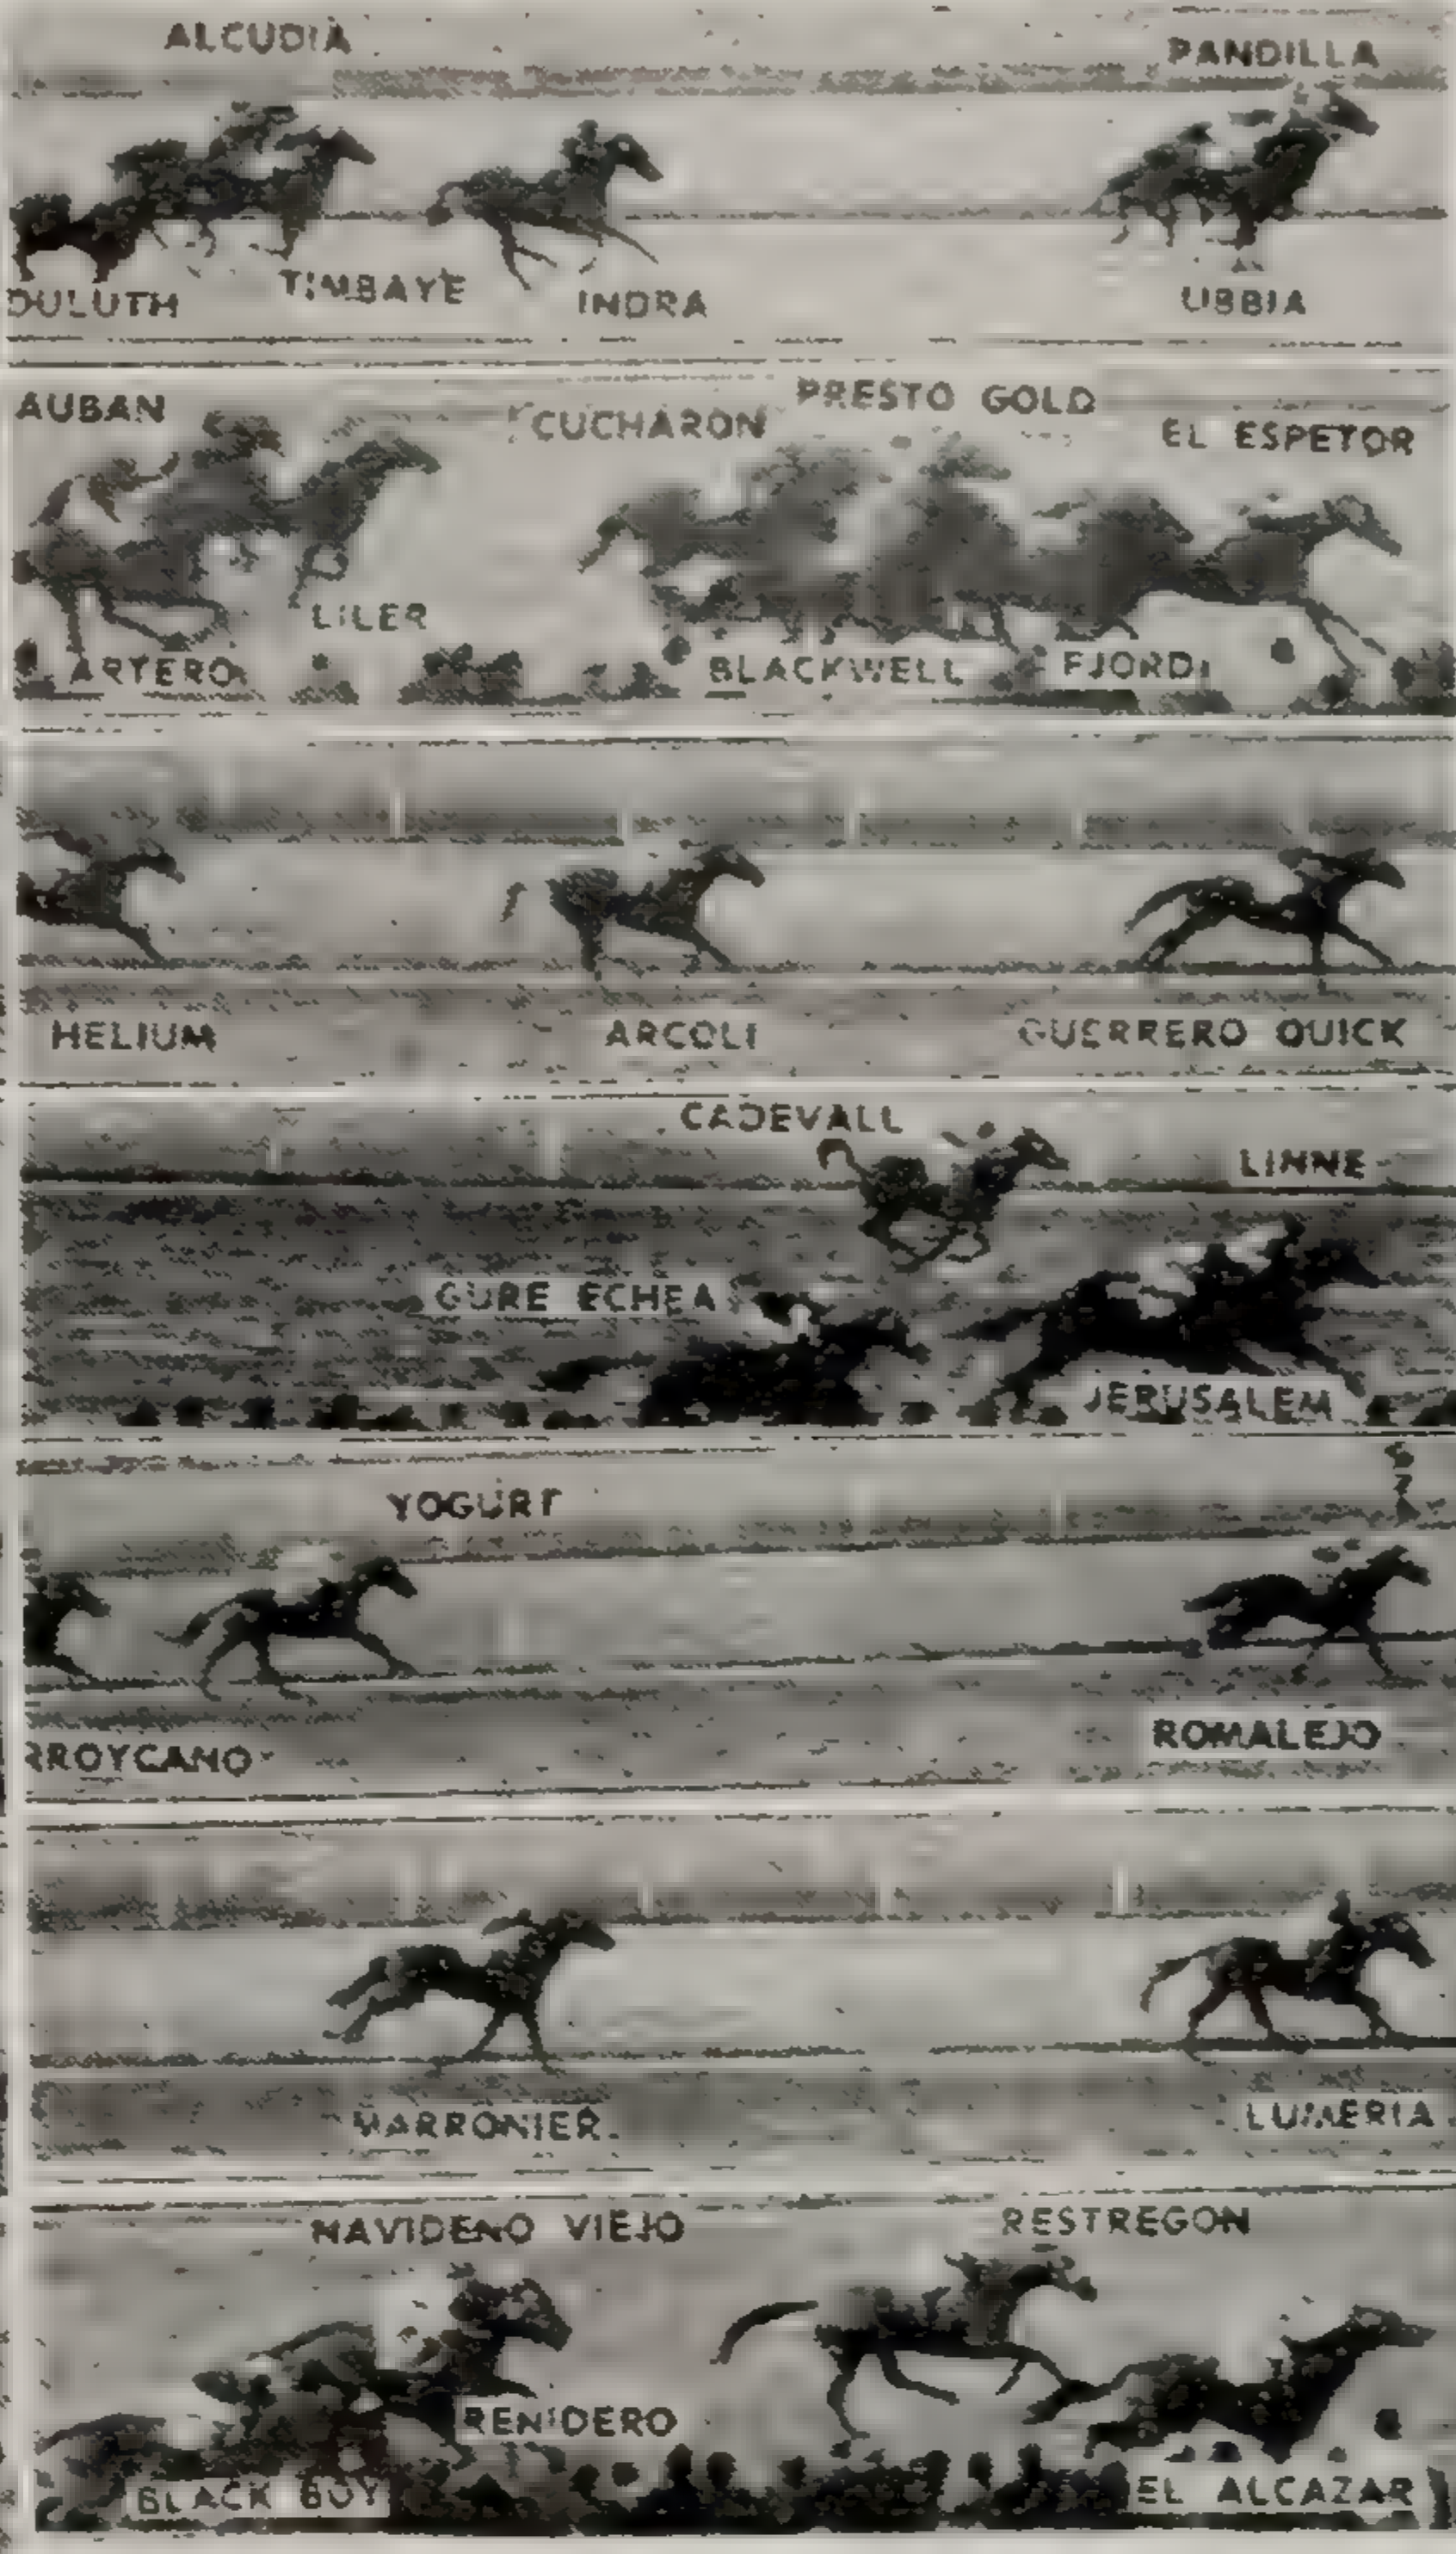 ALCUDIA
PANDILLA
DULUTH TIMBAYE INDRA UBBIA
AUBAN CUCHARON PRESTO GOLD EL ESPETOR
LILER
ARTERO BLACKWELL FJORD
HELIUM ARCOLI GUERRERO QUICK
CADEVALL
LINNE
GURE ECHEA
JERUSALEM
YOGURT
RROYCANO ROMALEJO
MARRONIER LUMERIA
NAVIDENO VIEJO RESTREGON
RENIDERO
BLACK BOY EL ALCAZAR